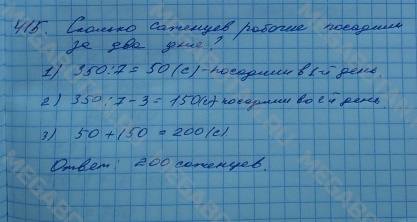 415. Сколько саженцев рабочие посадили
за два дня?
1) 350:7=50(с)-посадили в 1-й день
2) 350:7-3=150(с)-посадили во 2-й день
3) 50+150=200(с)
Ответ: 200 саженцев.